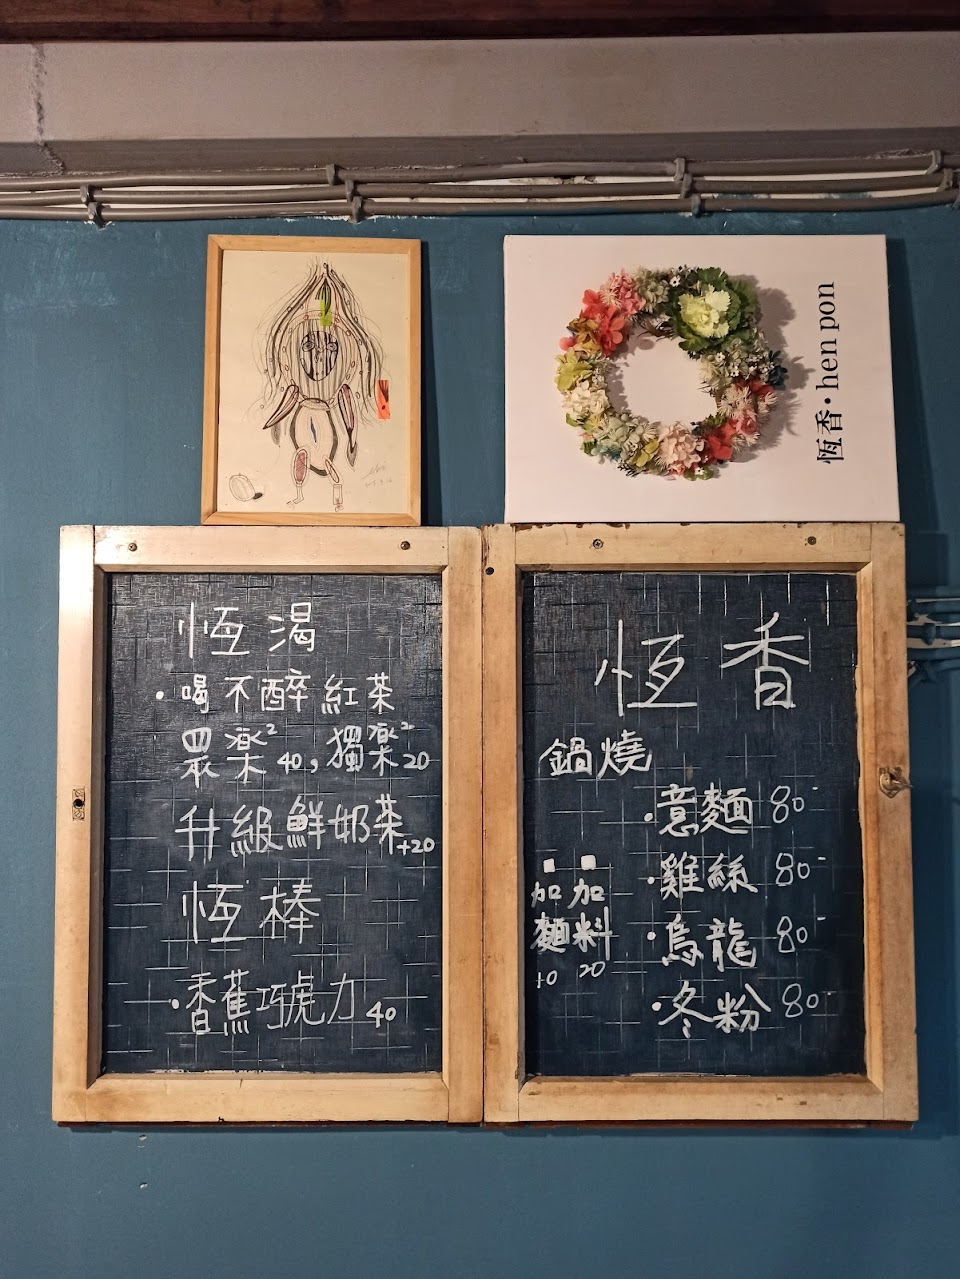 恆香·hen pon
恆渴
·喝不醉紅茶
眾樂²40,獨樂²20
升級鮮奶茶+20
恆棒
·香蕉巧虎力40
恆香
鍋燒
·意麵 80-
·雞絲 80-
·烏龍 80-
·冬粉 80-
加麵 10
加料 20